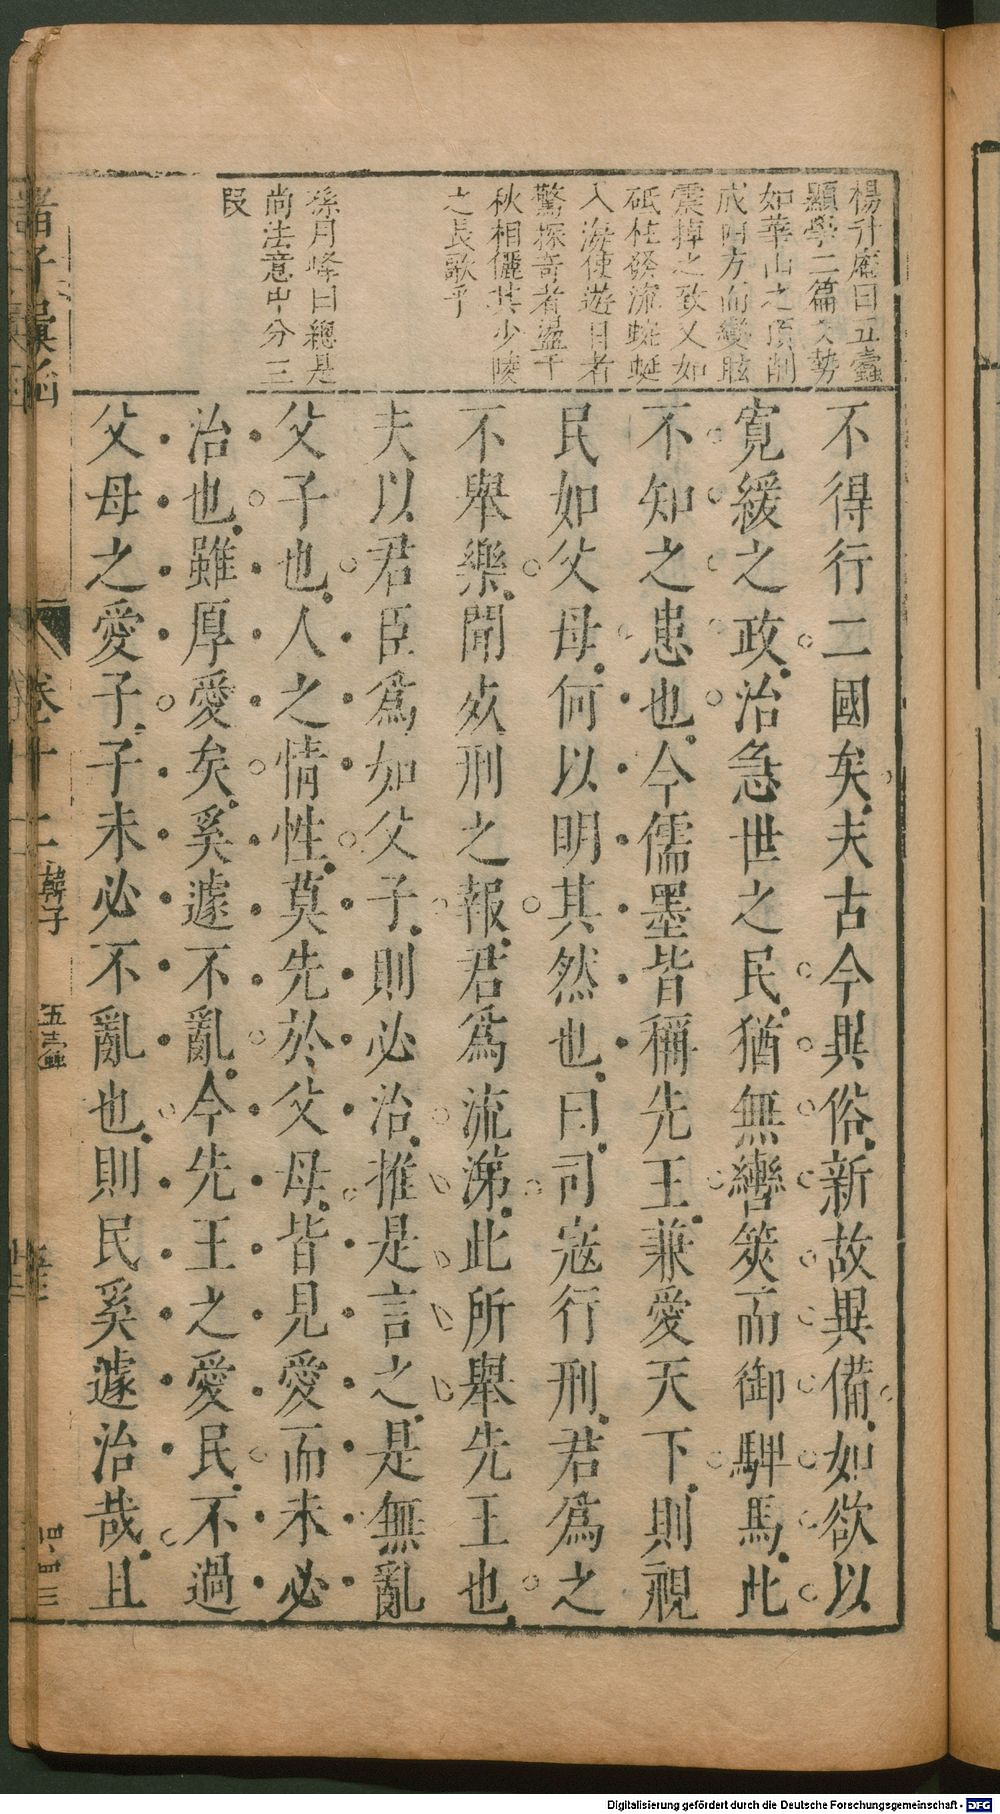 楊升庵曰五蠹
顯學二篇文勢
如華山之頂削
成四方而變眩
震掉之致又如
砥柱發流蜿蜒
入海使遊目者
驚探奇者溫千
秋相儷其少陵
之長歌乎
孫月峰曰總是
尚法意中分三
段
不得行二國矣夫古今異俗新故異備如欲以
寬緩之政治急世之民猶無轡筴而御駻馬此
不知之患也今儒墨皆稱先王兼愛天下則視
民如父母何以明其然也曰司寇行刑君爲之
不舉樂聞死刑之報君爲流涕此所舉先王也
夫以君臣爲如父子則必治推是言之是無亂
父子也人之情性莫先於父母皆見愛而未必
治也雖厚愛矣奚遽不亂今先王之愛民不過
父母之愛子子未必不亂也則民奚遽治哉且
諸子彙函
卷十二
韓子
五蠹
Digitalisierung gefördert durch die Deutsche Forschungsgemeinschaft - DFG